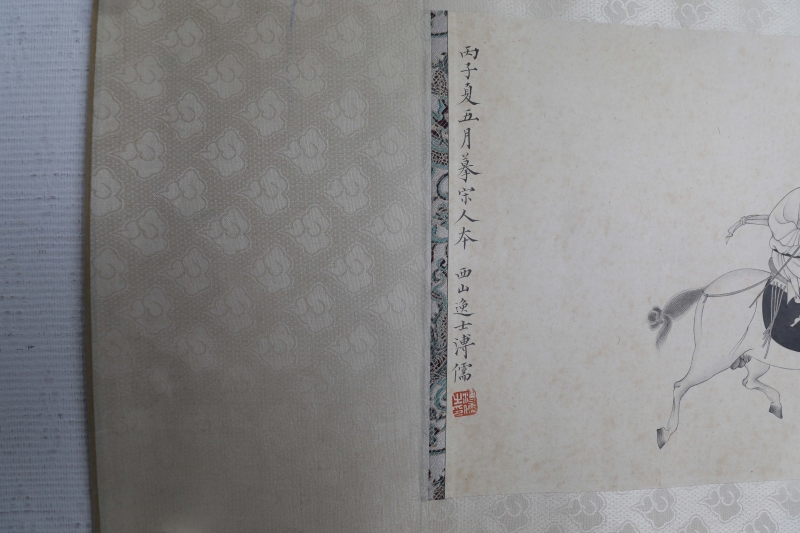 丙子夏五月摹宋人本 西山逸士溥儒